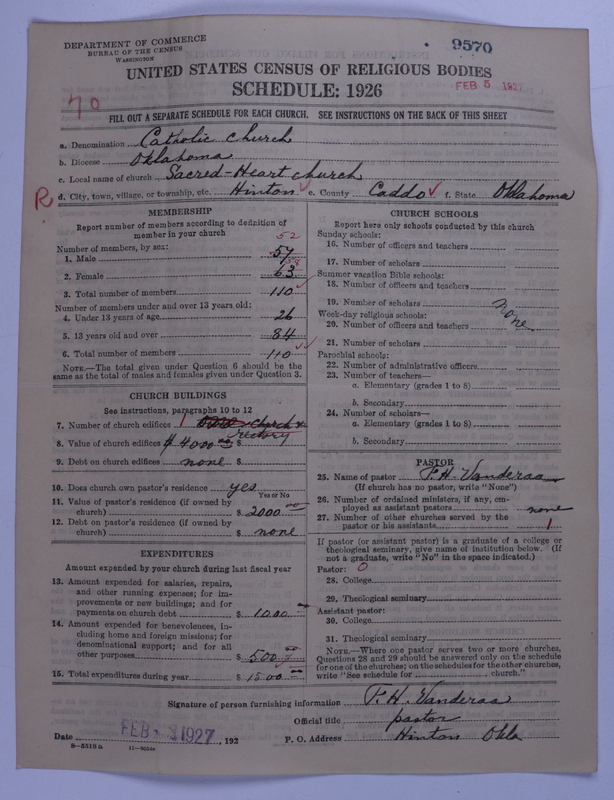 DEPARTMENT OF COMMERCE
BUREAU OF THE CENSUS
WASHINGTON
9570
UNITED STATES CENSUS OF RELIGIOUS BODIES
SCHEDULE: 1926
FEB 5 1927
70
FILL OUT A SEPARATE SCHEDULE FOR EACH CHURCH. SEE INSTRUCTIONS ON THE BACK OF THIS SHEET
a. Denomination Catholic church
b. Diocese Oklahoma
c. Local name of church Sacred-Heart church
R d. City, town, village, or township, etc. Hinton e. County Caddo f. State Oklahoma
MEMBERSHIP
Report number of members according to definition of
member in your church
52
Number of members, by sex:
1. Male 57
58
2. Female 63
3. Total number of members 110
Number of members under and over 13 years old:
4. Under 13 years of age 26
5. 13 years old and over 84
6. Total number of members 110
NOTE.—The total given under Question 6 should be the
same as the total of males and females given under Question 3.
CHURCH BUILDINGS
See instructions, paragraphs 10 to 12
7. Number of church edifices 1 church &
rectory
8. Value of church edifices $ 4000 00 $
9. Debt on church edifices none $
10. Does church own pastor's residence yes
Yes or No
11. Value of pastor's residence (if owned by
church) $ 2000 00
12. Debt on pastor's residence (if owned by
church) $ none
EXPENDITURES
Amount expended by your church during last fiscal year
13. Amount expended for salaries, repairs,
and other running expenses; for im-
provements or new buildings; and for
payments on church debt $ 1000
14. Amount expended for benevolences, in-
cluding home and foreign missions; for
denominational support; and for all
other purposes $ 500 00
15. Total expenditures during year $ 1500
CHURCH SCHOOLS
Report here only schools conducted by this church
Sunday schools:
16. Number of officers and teachers
17. Number of scholars
Summer vacation Bible schools:
18. Number of officers and teachers
19. Number of scholars
none
Week-day religious schools:
20. Number of officers and teachers
21. Number of scholars
Parochial schools:
22. Number of administrative officers
23. Number of teachers—
a. Elementary (grades 1 to 8)
b. Secondary
24. Number of scholars—
a. Elementary (grades 1 to 8)
b. Secondary
PASTOR
25. Name of pastor F. H. Vanderaa
(If church has no pastor, write "None")
26. Number of ordained ministers, if any, em-
ployed as assistant pastors none
27. Number of other churches served by the
pastor or his assistants 1
If pastor (or assistant pastor) is a graduate of a college or
theological seminary, give name of institution below. (If
not a graduate, write "No" in the space indicated.)
Pastor: 0
28. College
29. Theological seminary
Assistant pastor:
30. College
31. Theological seminary
NOTE.—Where one pastor serves two or more churches,
Questions 28 and 29 should be answered only on the schedule
for one of the churches; on the schedules for the other churches,
write "See schedule for church."
Signature of person furnishing information F. H. Vanderaa
Official title pastor
Date FEB 3 1927, 192
P. O. Address Hinton Okla